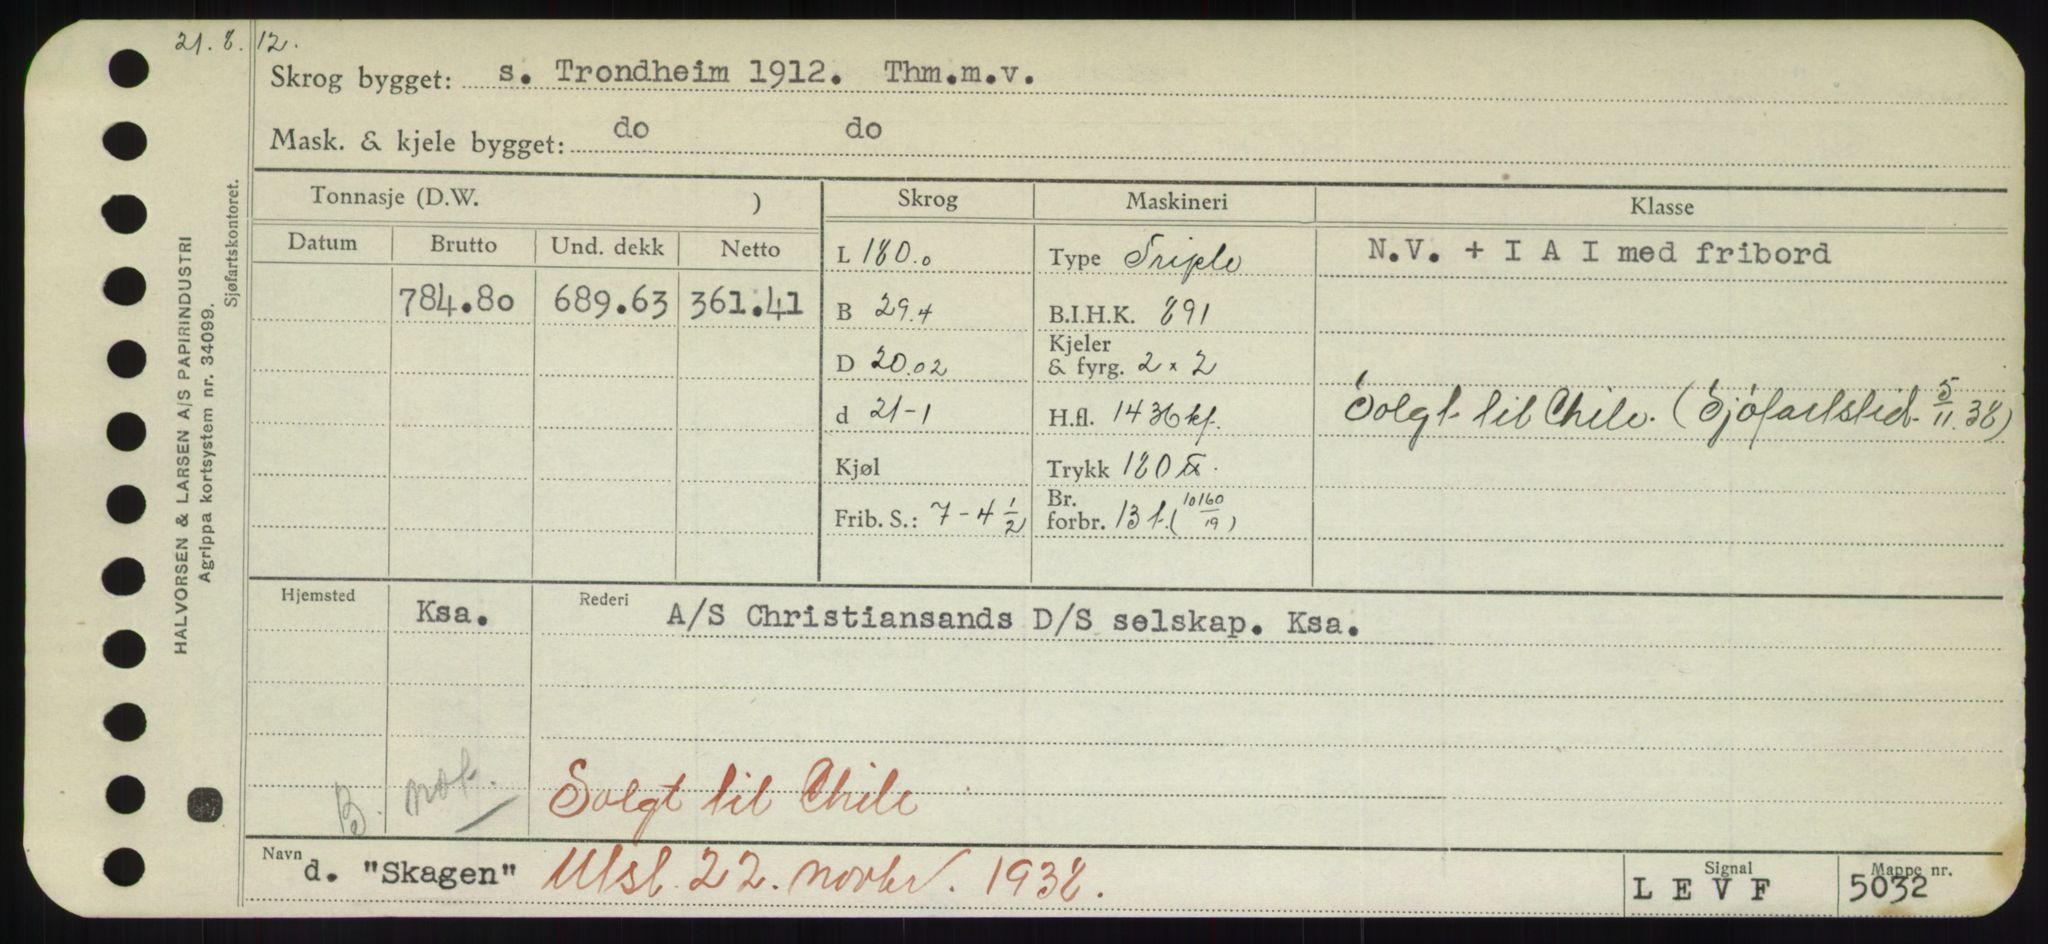 21. 8. 12.
Skrog bygget: s. Trondheim 1912. Thm.m.v.
Mask. & kjele bygget: do do
HALVORSEN & LARSEN A/S PAPIRINDUSTRI
Agrippa kortsystem nr. 34099.
Sjøfartskontoret.
Tonnasje (D.W. ) Skrog Maskineri Klasse
Datum Brutto Und. dekk Netto
L 180.0 Type Triple N.V. + I A I med fribord
784.80 689.63 361.41
B 29.4 B.I.H.K. 891
D 20.02 Kjeler & fyrg. 2 x 2
d 21-1 H.fl. 1436 kf. Solgt til Chile. (Sjøfartstid. 5/11.38)
Kjøl Trykk 180 lb.
Frib. S.: 7-4 1/2 Br. forbr. 13 t. (10160/19)
Hjemsted Ksa. Rederi A/S Christiansands D/S selskap. Ksa.
B. not. Solgt til Chile
Navn d. "Skagen" Utsl. 22. novbr. 1938. Signal L E V F Mappe nr. 5032